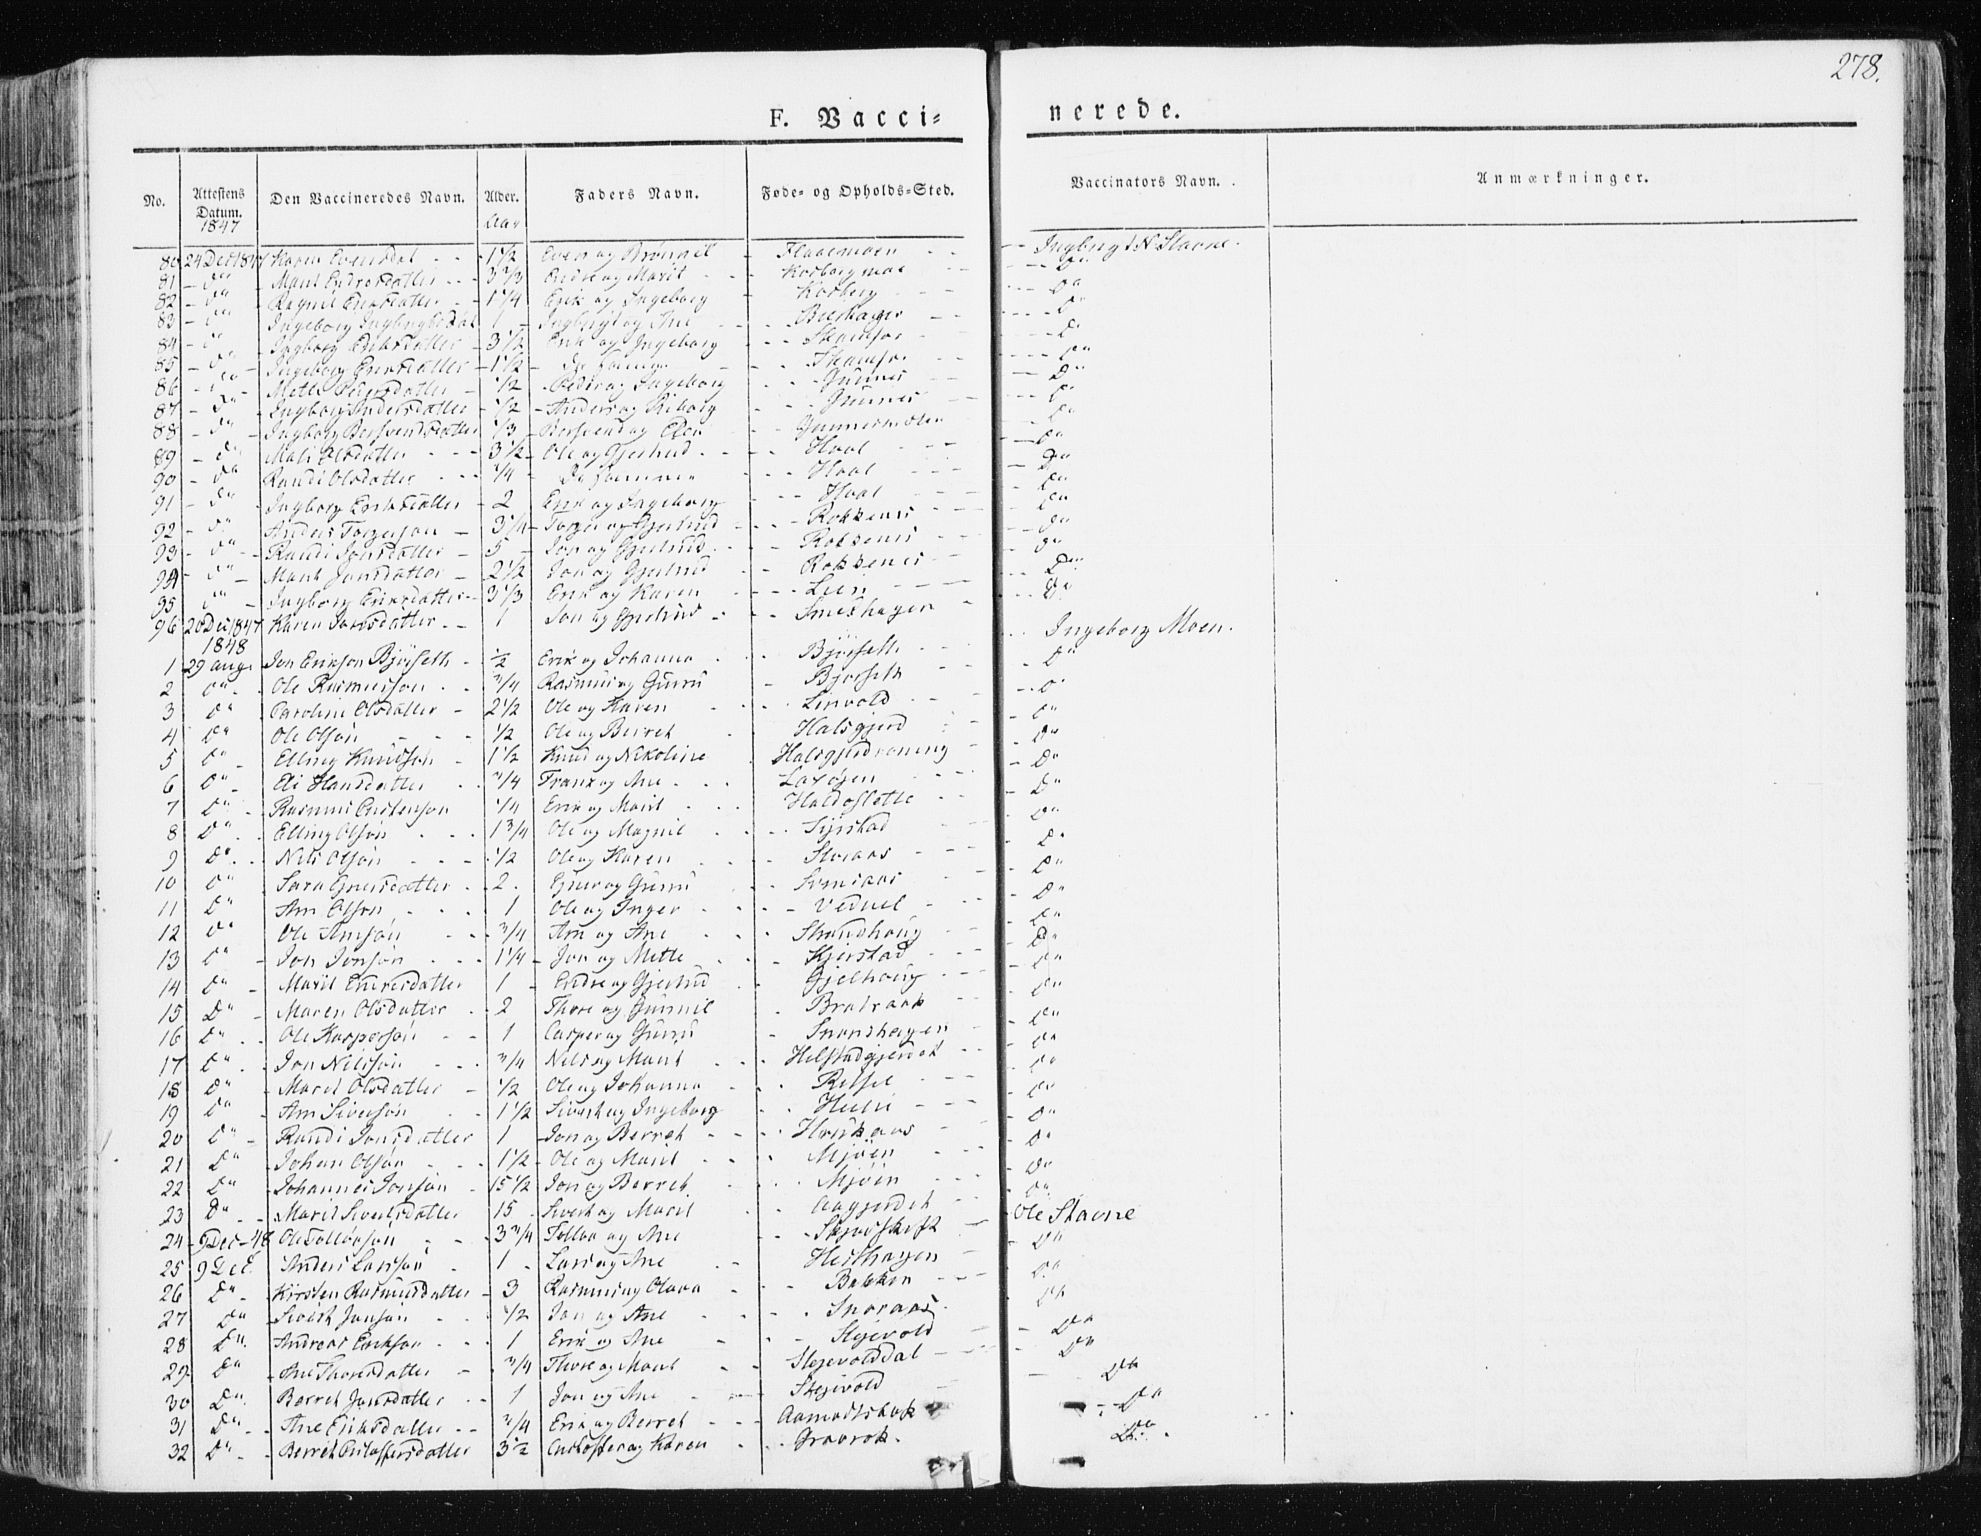 278.
F. Vacci= nerede.
No. Attestens Datum. Den Vaccineredes Navn. Alder. Faders Navn. Føde- og Opholds-Sted. Vaccinators Navn. Anmærkninger.
1847 Aar
80 24 Dec 1847 Karen 1 1/2 Even og Flaaemoen Ingbrigt N. Stavne.
81 - Do - Marit Endresdatter 3 2/3 Endre og Marit Korbergmoe Do
82 - Do - Ragnil Eriksdatter 1 1/4 Erik og Ingeborg Korberg Do
83 - Do - Ingeborg 1 Ingbrigt og Ane Do
84 - Do Ingborg Eriksdatter 3 1/2 Erik og Ingeborg Do
85 - Do - Ingeborg Eriksdatter 1 1/2 De samme Do
86 - Do - Mette Pedersdatter 1/2 Peder og Ingeborg Gunnes Do
87 - Do - Ingborg Andersdatter 1/2 Anders og Siborg Gunnes Do
88 - Do - Ingborg Bersvendsdatter 1/3 Bersvend og Do
89 - Do Mali Olsdatter 3 1/2 Ole og Gjertrud Hoal Do
90 - Do Randi Olsdatter 1/4 De samme Hoal Do
91 - Do Ingborg Eriksdatter 2 Erik og Ingeborg Hoal Do
92 - Do - Anders Torgerson 3 1/4 Torger og Gjertrud Rokkenes Do
93 - Do - Randi Jonsdatter 5 Jon og Gjertrud Roksenes Do
94 - Do - Marit Jonsdatter 2 1/2 Jon og Gjertrud Roksenes Do
95 Do - Ingborg Eriksdatter 3 1/3 Erik og Karen Leen Do
96 20 Dec 1847 Karen Jonsdatter 1 Jon og Gjertrud Smeshagen Ingeborg Moen.
1848
1 29 aug Jon Erikson Bjørseth 1/2 Erik og Johanna Bjørseth Do
2 Do Ole Rasmusson 3/4 Rasmus og Guru Bjorseth Do
3 Do Caroline Olsdatter 2 1/2 Ole og Karen Lenvold Do
4 Do Ole Olson 1/2 Ole og Berret Halsgjerd Do
5 Do Elling Knudson 1 1/2 Knud og Nikoline Do
6 Do Eli Hansdatter 3/4 og Ane Laxøyen Do
7 Do Rasmus 1/4 Erik og Marit Haldoslette Do
8 Do Elling Olsøn 1 3/4 Ole og Magnil Do
9 Do Nils Olsøn 1/2 Ole og Karen Do
10 Do Sara 2 og Guru Do
11 Do Arn Olson 1 Ole og Inger Do
12 Do Ole Arnsøn 3/4 Arn og Ane Strandhoug Do
13 Do Jon Jonsøn 1 1/4 Jon og Mette Kjerstad Do
14 Do Marit Endresdatter 1 Endre og Gjertrud Gjelhoug Do
15 Do Maren Olsdatter 2 Thore og Gunnil Do
16 Do Ole Kaspersøn 1 Casper og Guru Do
17 Do Jon Nilssøn 3/4 Nils og Marit Helstadgjerdet Do
18 Do Marit Olsdatter 1/2 Ole og Johanna Do
19 Do Arn Sivertsøn 1 1/2 Sivert og Ingeborg Do
20 Do Randi Jonsdatter 1 Jon og Berret Do
21 Do Johan Olsøn 1 1/2 Ole og Marit Mjøen Do
22 Do Johannes Jonsøn 15 1/2 Jon og Berret Mjøen Do
23 Do Marit Sivertsdatter 15 Sivert og Marit Aagjerdet Ole Stavne
24 9 Dec 48 Ole 3 3/4 og Ane Do
25 9 Dec Anders Larsøn 1 Lars og Ane Do
26 Do Kirsten Rasmusdatter 3 Rasmus og Olava Bakken Do
27 Do Sivert Jonsøn 1/2 Jon og Ane Do
28 Do Andreas Erikson 1 Erik og Ane Stjevold Do
29 Do Ane Thoresdatter 3/4 Thore og Marit Stjevolddal Do
30 Do Berret Jonsdatter 1 Jon og Ane Stjevold Do
31 Do Ane Eriksdatter 3/4 Erik og Berret Do
32 Do Berret 3 1/2 og Karen Gravrok. Do